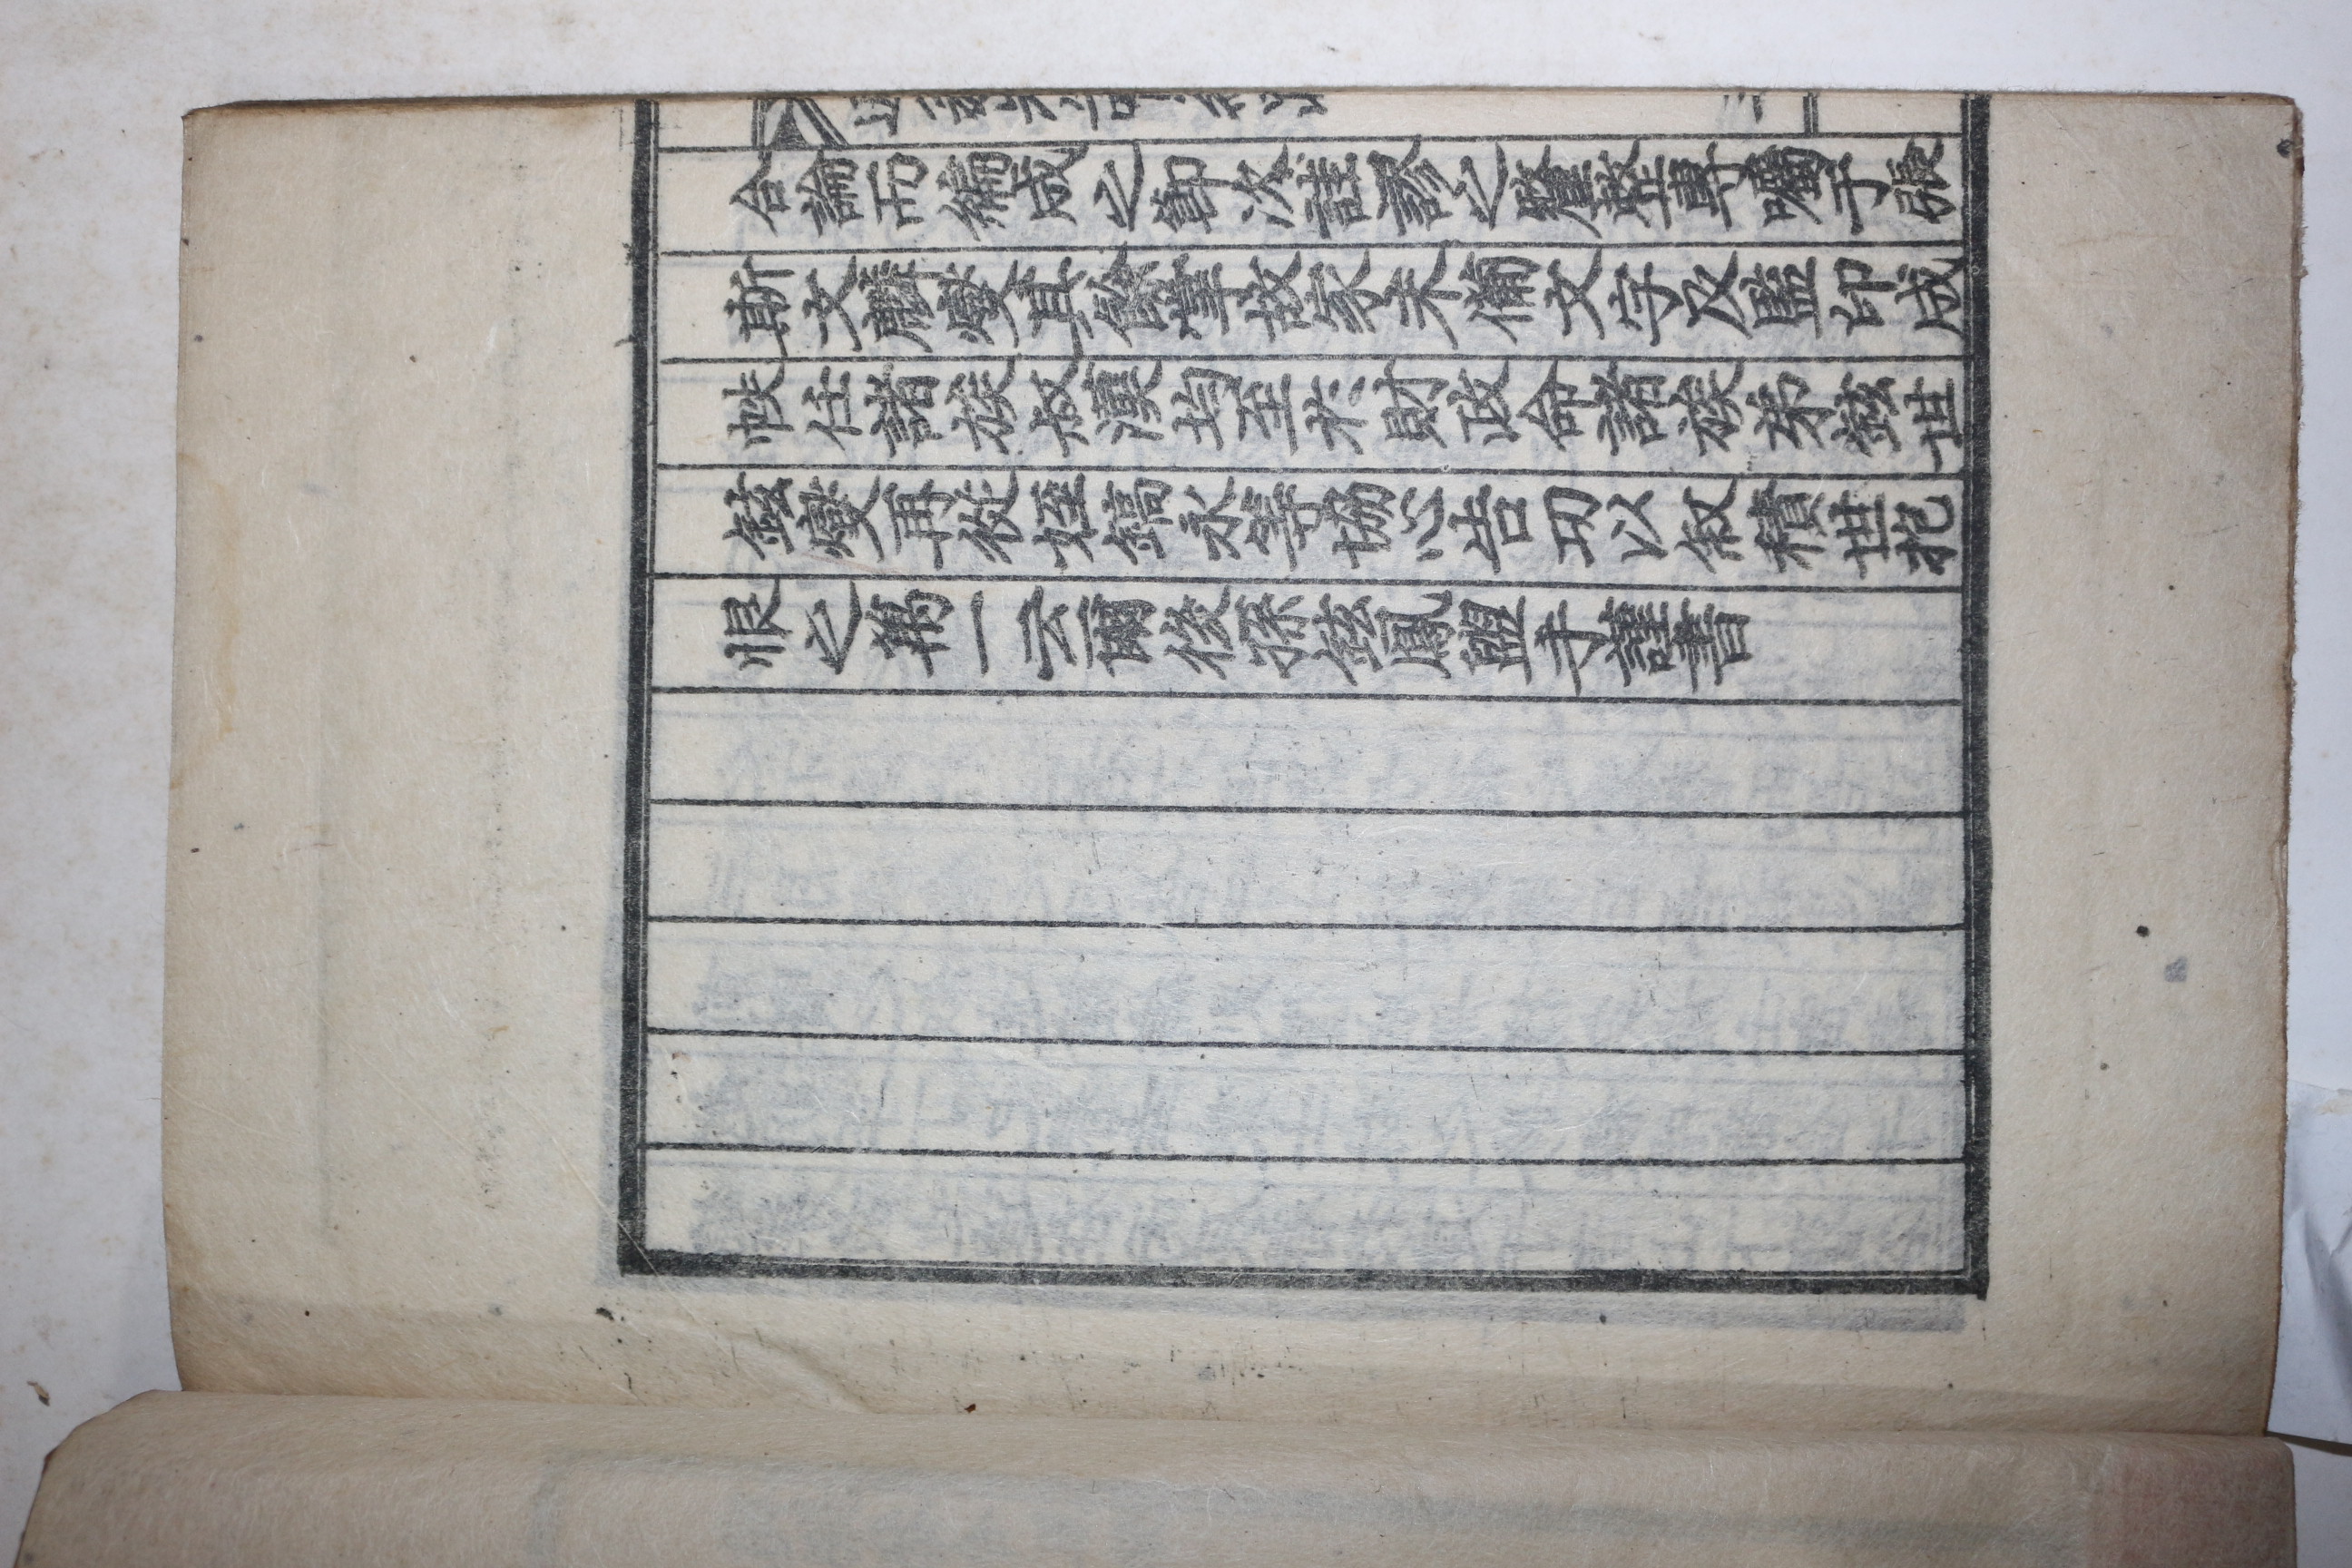 合論而編成之節次註謬之釐整專囑于張
斯文麟燮其餘掌故家未備文字及監印成
帙任諸族叔漢均至於財政命諸族弟鉉世
鉉燮再從姪鎬永等協心告功以叙積世抱
恨之萬一云爾後孫鉉鳳盥手謹書
二